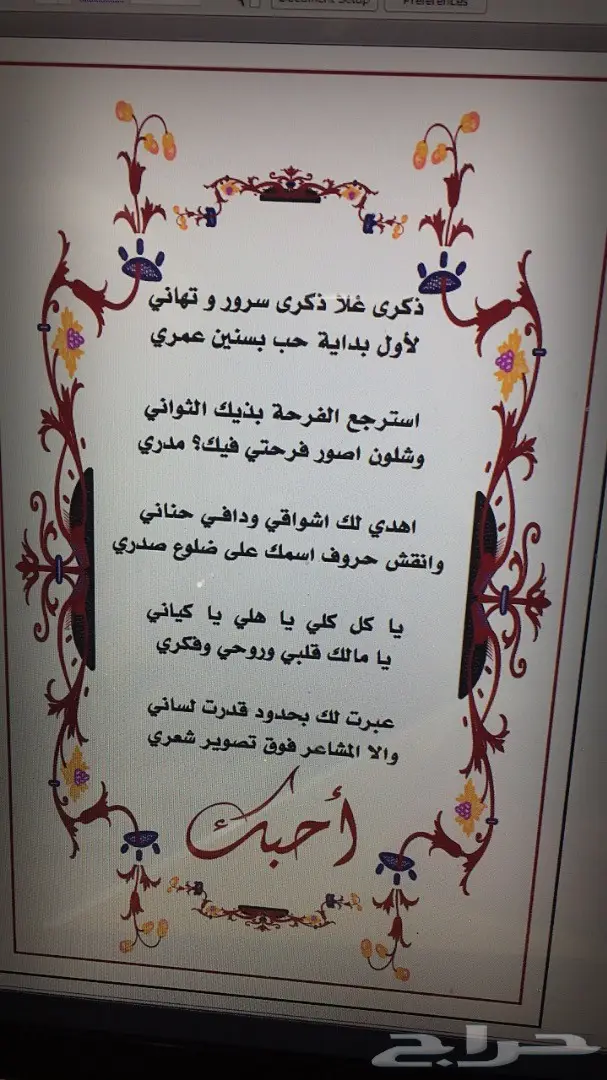 Document Setup
Preferences
ذكرى غلا ذكرى سرور و تهاني
لأول بداية حب بسنين عمري
استرجع الفرحة بذيك الثواني
وشلون اصور فرحتي فيك؟ مدري
اهدي لك اشواقي ودافي حناني
وانقش حروف اسمك على ضلوع صدري
يا كل كلي يا هلي يا كياني
يا مالك قلبي وروحي وفكري
عبرت لك بحدود قدرت لساني
والا المشاعر فوق تصوير شعري
أحبك
حراج